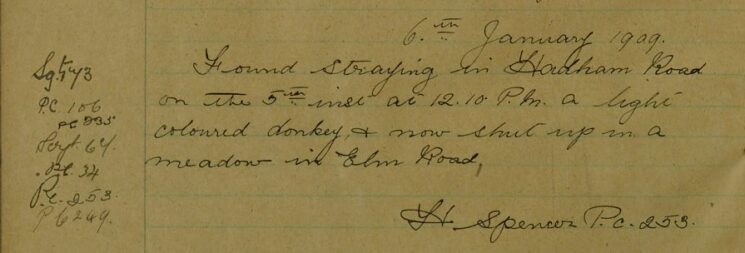 6.th January 1909.
Found straying in Hadham Road
on the 5th inst at 12.10 P.M. a light
coloured donkey, & now shut up in a
meadow in Elm Road,
H. Spencer P.C. 253.
Sgt 73
P.C. 106
PC 235
Sergt. 64.
P.C. 34
P.C. 253.
PC 249.